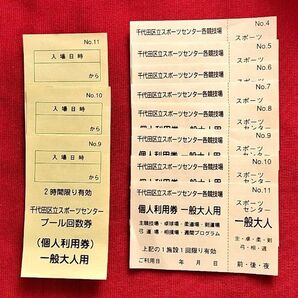 No.11
入場日時
から
No.10
入場日時
から
No.9
入場日時
から
2時間限り有効
千代田区立スポーツセンター
プール回数券
(個人利用券)
一般大人用
千代田区立スポーツセンター各競技場
No.4
スポーツ
千代田区立スポーツセンター各競技場
No.5
スポーツ
千代田区立スポーツセンター各競技場
No.6
スポーツ
千代田区立スポーツセンター各競技場
No.7
スポーツ
千代田区立スポーツセンター各競技場
No.8
スポーツ
個人利用券 一般大人用
センター
千代田区立スポーツセンター各競技場
No.9
スポーツ
千代田区立スポーツセンター各競技場
No.10
スポーツ
千代田区立スポーツセンター各競技場
No.11
スポーツ
センター
個人利用券 一般大人用
一般大人
主競技場・卓球場・柔道場・剣道場
弓道場・相撲場・週間プログラム
主・卓・柔・剣
弓・相・週
上記の1施設1回限り有効
ご利用日 年 月 日
前・後・夜